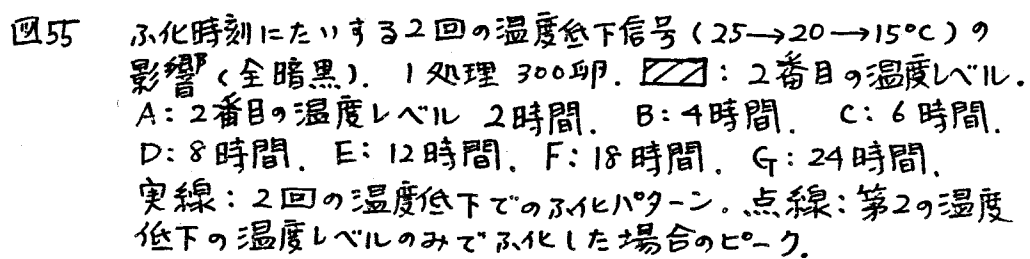 図55 ふ化時刻にたいする2回の温度低下信号(25→20→15°C)の
影響(全暗黒). 1処理 300卵. : 2番目の温度レベル.
A: 2番目の温度レベル 2時間. B: 4時間. C: 6時間.
D: 8時間. E: 12時間. F: 18時間. G: 24時間.
実線: 2回の温度低下でのふ化パターン。点線: 第2の温度
低下の温度レベルのみでふ化した場合のピーク.